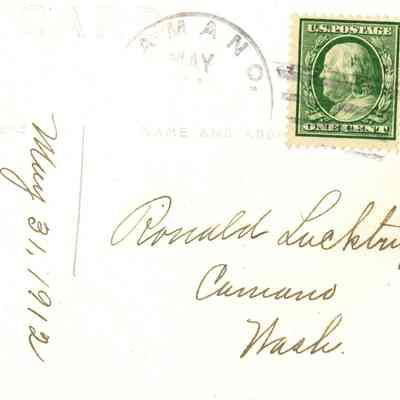 CAMANO,
MAY
U.S. POSTAGE
ONE CENT
NAME AND
May 31, 1912
Ronald
Camano
Wash.